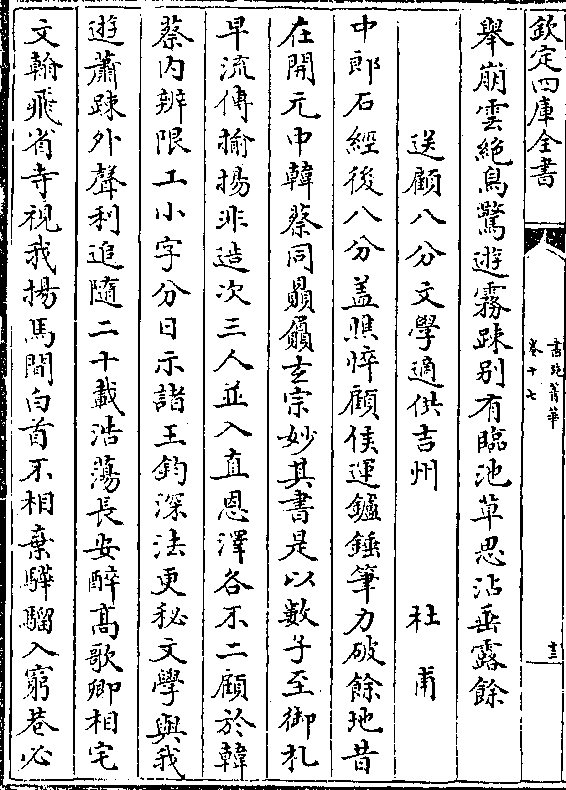 欽定四庫全書
書苑菁華
卷十七
十三
舉崩雲絶鳥驚遊霧踈别有臨池草恩沾垂露餘
送顧八分文學適供吉州 杜甫
中郎石經後八分盖憔悴顧侯運鑪錘筆力破餘地昔
在開元中韓蔡同贔屭玄宗妙其書是以數子至御札
早流傳揄揚非造次三人並入直恩澤各不二顧於韓
蔡内辨眼工小字分日示諸王鈎深法更秘文學與我
遊蕭踈外聲利追隨二十載浩蕩長安醉高歌卿相宅
文翰飛省寺視我揚馬間白首不相棄驊騮入窮巷必